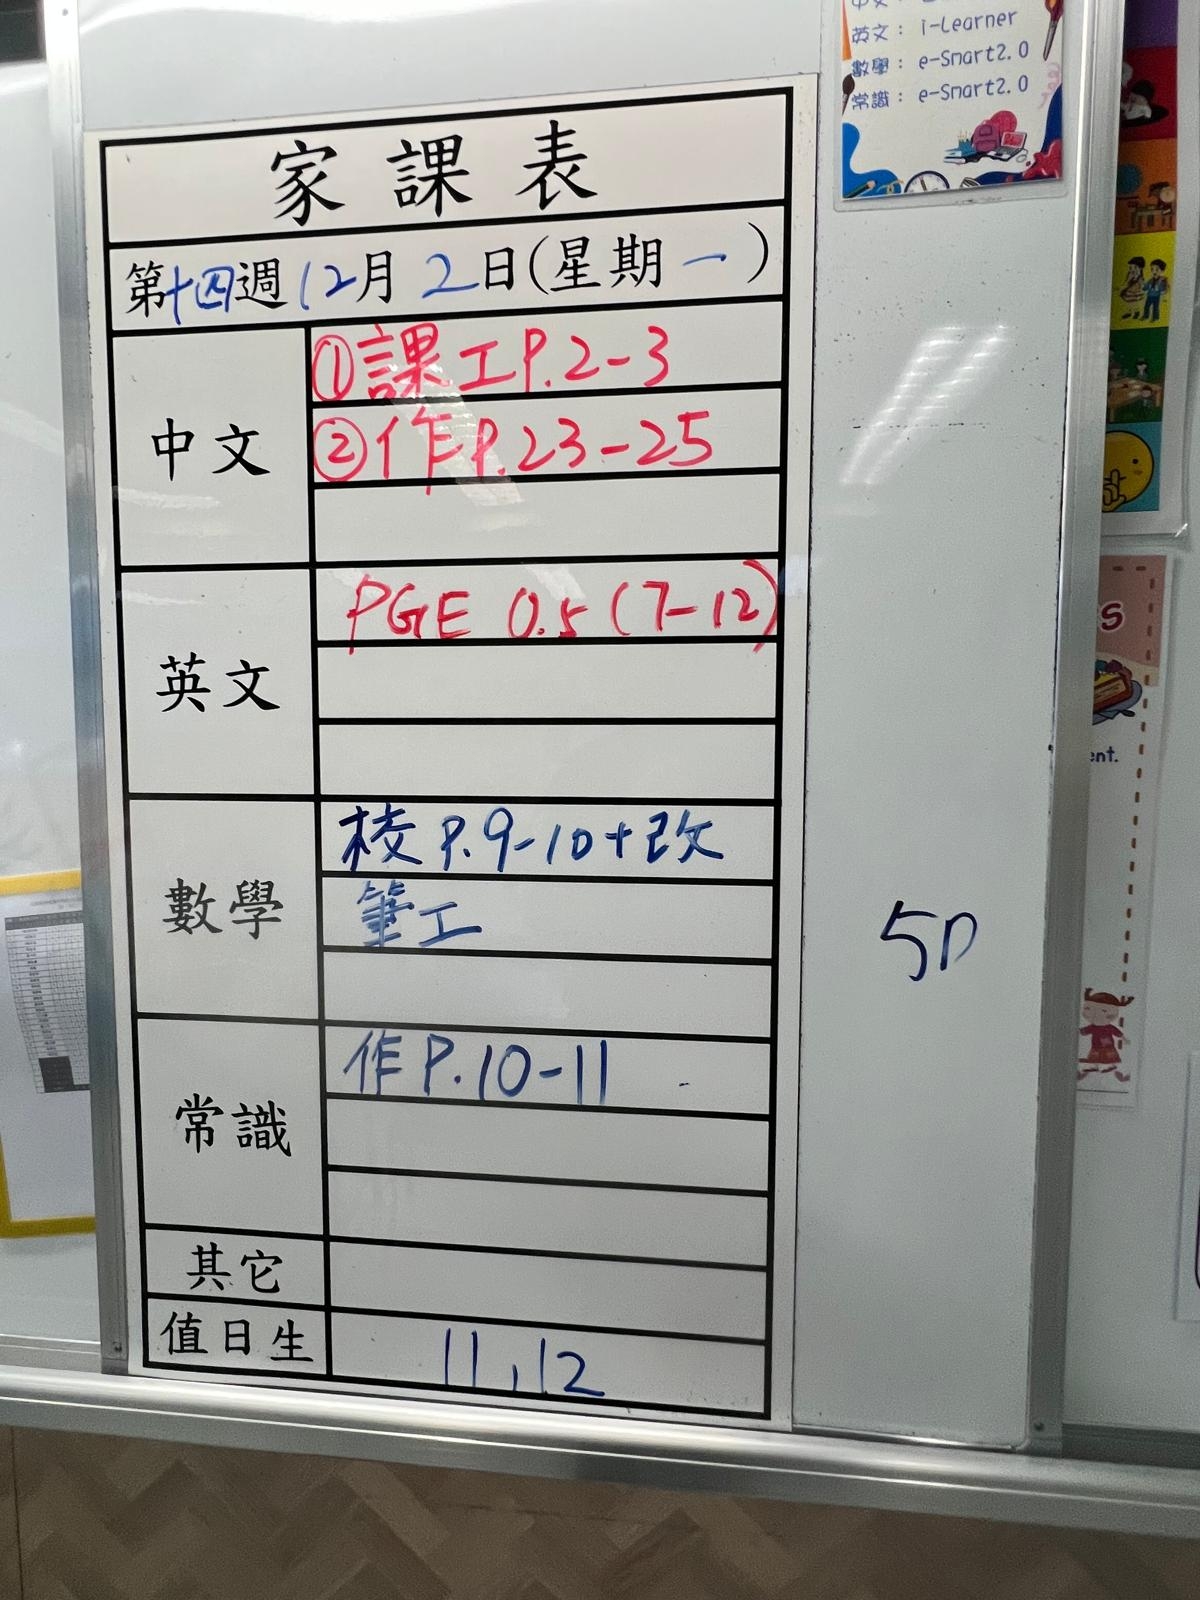 英文： i-Learner
數學： e-Smart2.0
常識： e-Smart2.0
家課表
第十四週12月2日(星期一)
中文
①課工P.2-3
②作P.23-25
英文
PGE 0.5 (7-12)
數學
校 P.9-10+改
筆工
常識
作P.10-11
其它
值日生
11,12
5D
s
ent.